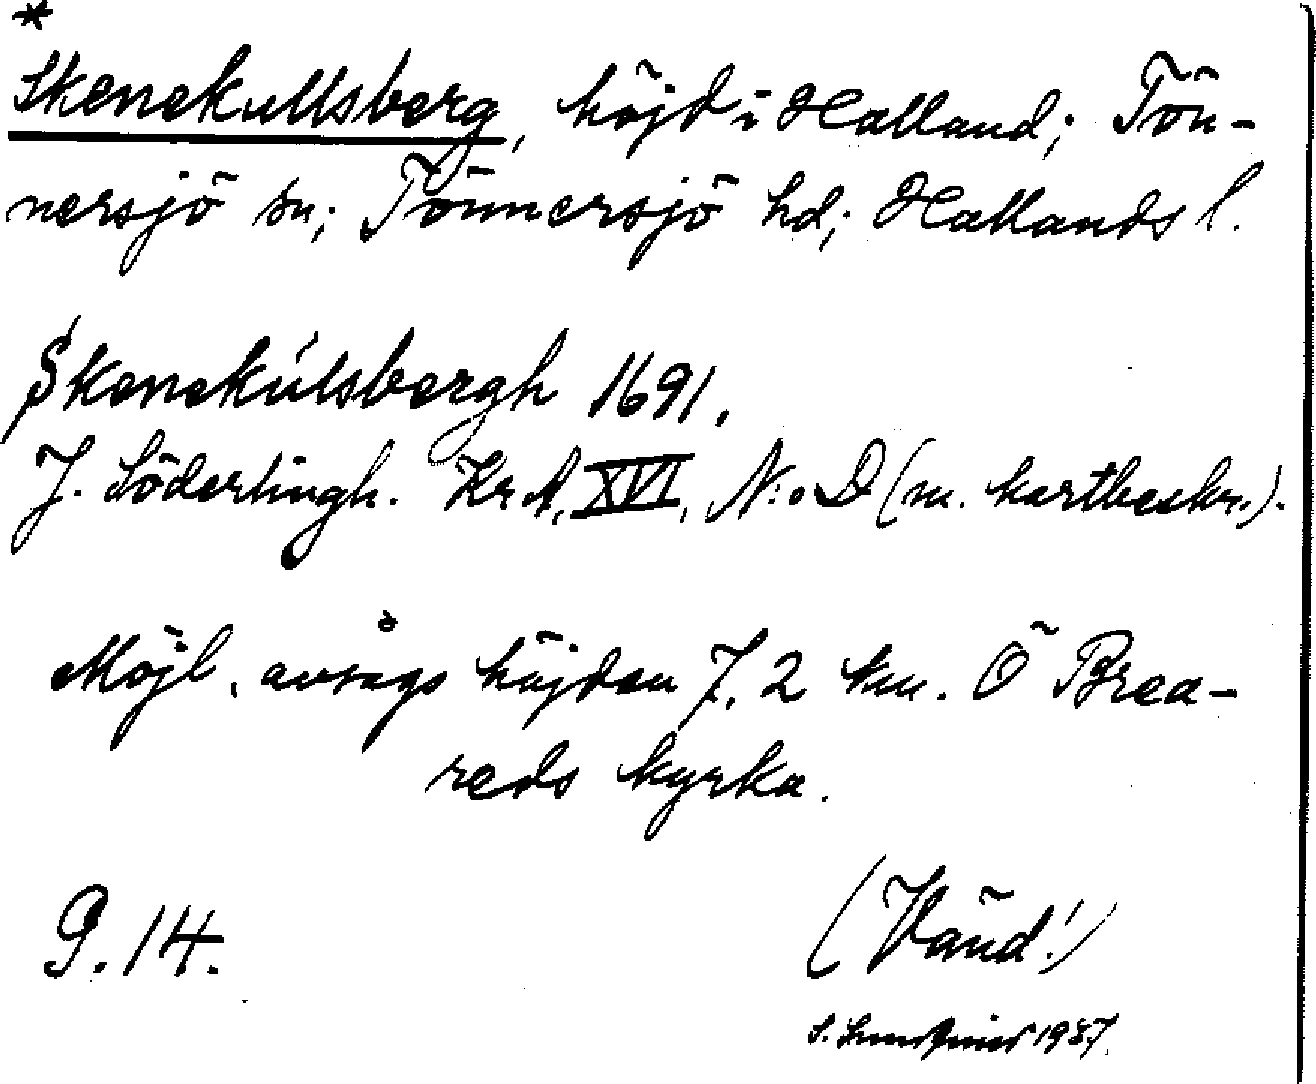 *
Skenekullsberg, höjd i Halland; Tön-
nersjö sn; Tönnersjö hd; Hallands l.
Skenekúlsbergh 1691.
J. Söderlingh. Kr.A, XVI, N:o D (m. kartbeskr.).
Möjl. avsågs höjden 7,2 km. Ö Brea-
reds kyrka.
9.14.
(Vänd!)
S. 1937.